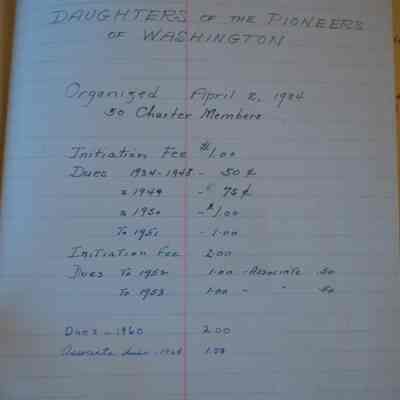 DAUGHTERS OF THE PIONEERS
OF WASHINGTON
Organized April 2, 1934
50 Charter Members
Initiation Fee $1.00
Dues 1934-1948 - 50¢
" 1949 - " 75¢
" 1950 - $1.00
To 1951 - 1.00
Initiation Fee 2.00
Dues To 1952 1.00 - Associate .50
To 1953 1.00 - " .50
Dues - 1960 2.00
Associate dues - 1.00